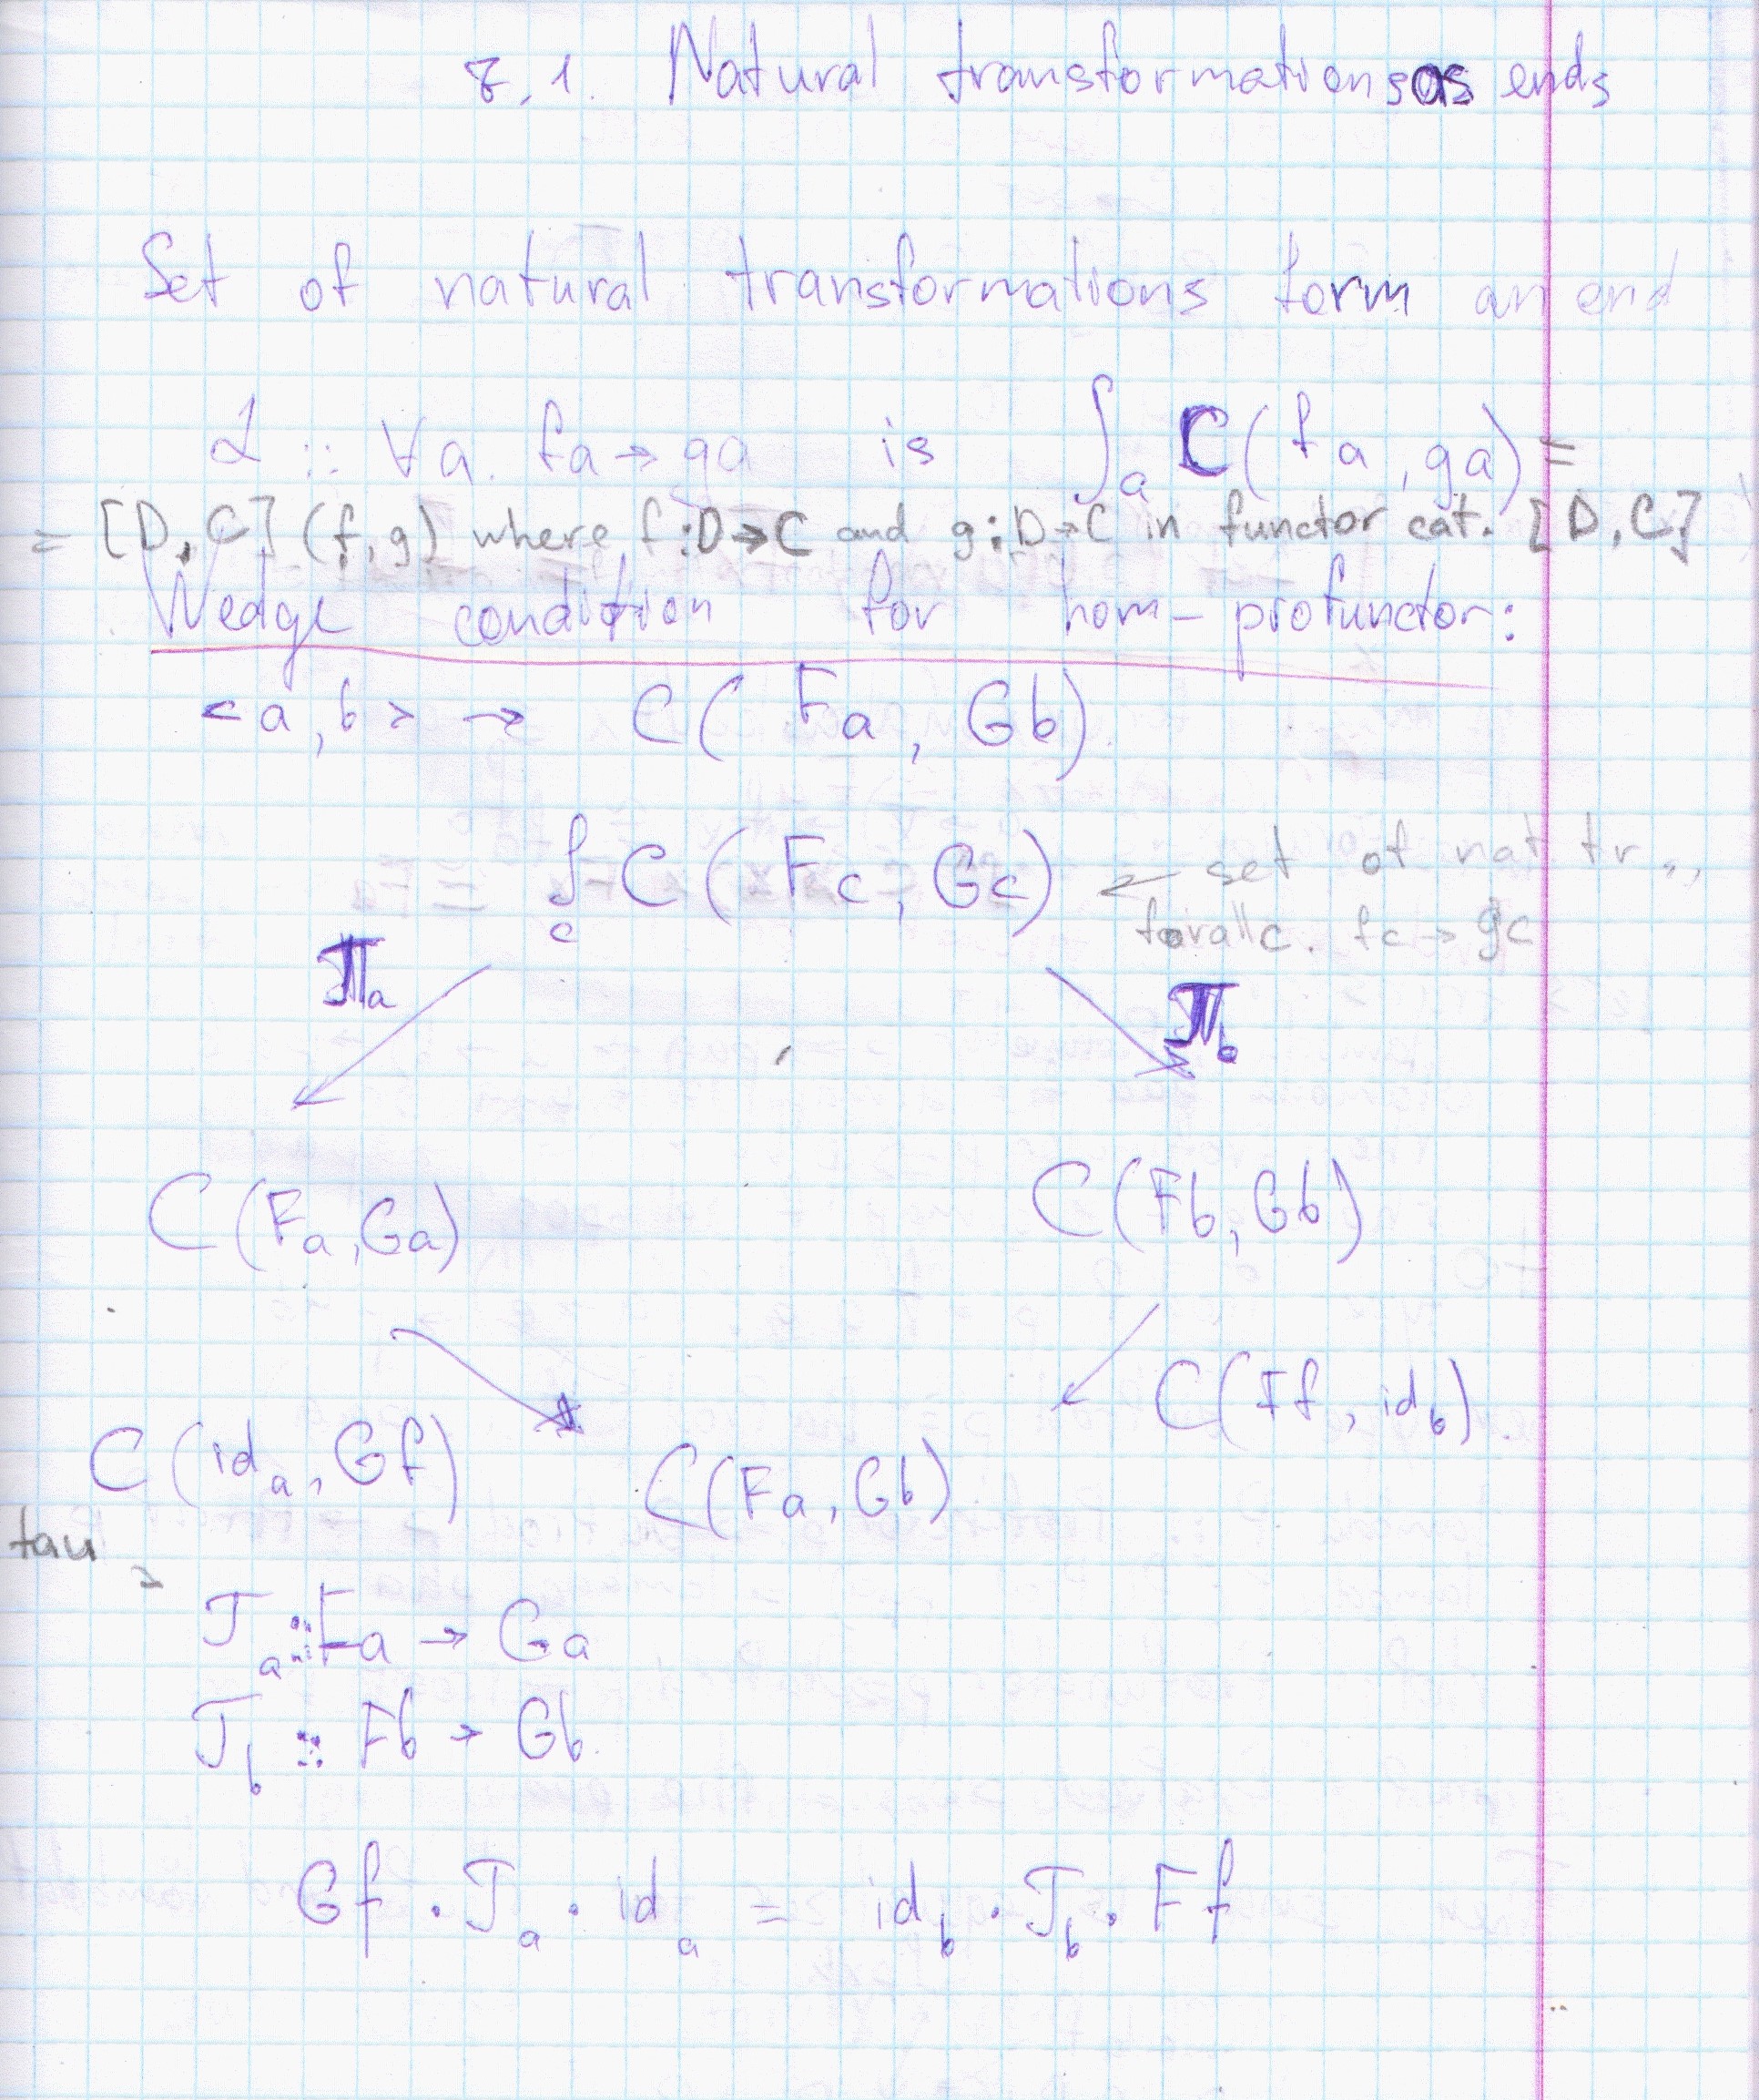 8.1. Natural transformations as ends
Set of natural transformations form an end
α :: ∀a. fa → ga is ∫_a C(fa, ga) =
= [D, C](f, g) where f:D→C and g:D→C in functor cat. [D, C]
Wedge condition for hom-profunctor:
<a, b> → C(Fa, Gb)
∫_c C(Fc, Gc) ← set of nat tr.,
forall c. fc → gc
π_a π_b
C(Fa, Ga) C(Fb, Gb)
C(Ff, id_b)
C(id_a, Gf) C(Fa, Gb)
tau
τ_a :: Fa → Ga
τ_b :: Fb → Gb
Gf . τ_a . id_a = id_b . τ_b . Ff